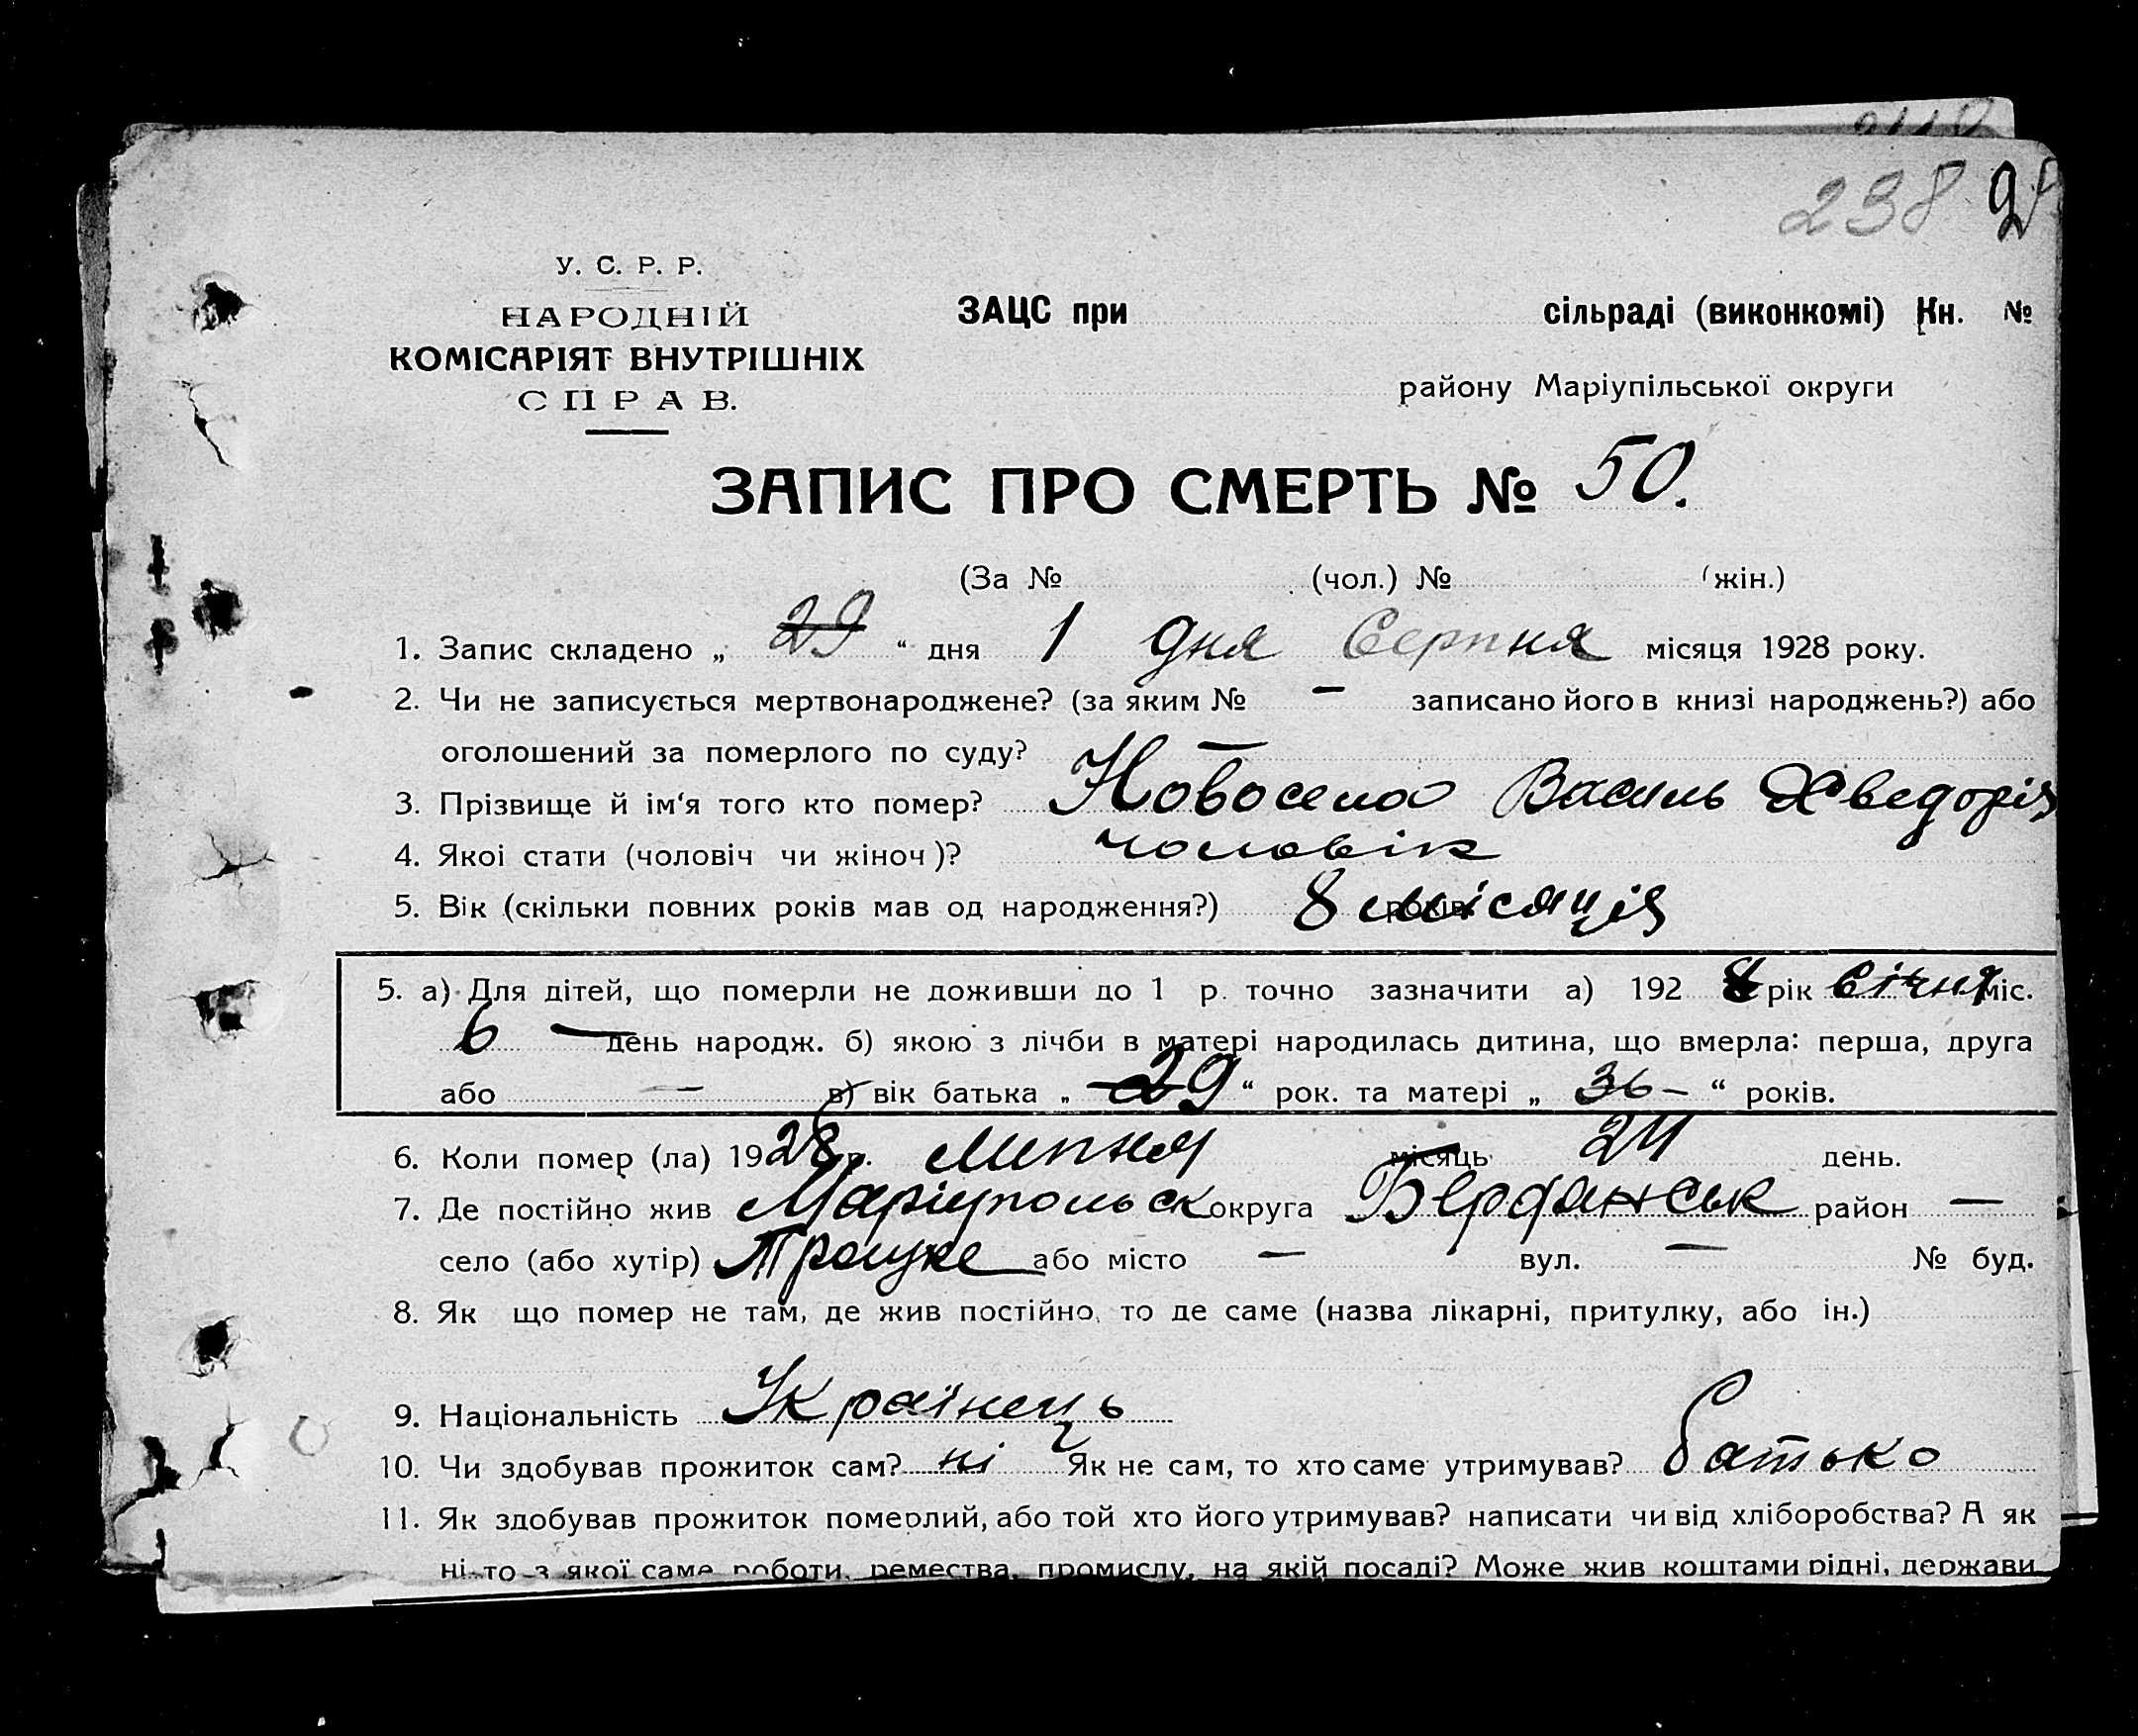 238
У. С. Р. Р.
НАРОДНІЙ
КОМІСАРІЯТ ВНУТРІШНІХ
СПРАВ.
ЗАЦС при сільраді (виконкомі) Кн. №
району Маріупільської округи
ЗАПИС ПРО СМЕРТЬ № 50.
(За № (чол.) № (жін.)
1. Запис складено „ 29 “ дня 1 дня Серпня місяця 1928 року.
2. Чи не записується мертвонароджене? (за яким № — записано його в книзі народжень?) або
оголошений за померлого по суду? —
3. Прізвище й ім‘я того кто помер? Новосела Василь Хведорів
4. Якоі стати (чоловіч чи жіноч)? чоловік
5. Вік (скільки повних років мав од народження?) 8 місяців
5. а) Для дітей, що померли не доживши до 1 р. точно зазначити а) 192 8 рік Січня міс.
6 — день народж. б) якою з лічби в матері народилась дитина, що вмерла: перша, друга
або — в) вік батька „ 29 “ рок. та матері „ 36 — “ років.
6. Коли помер (ла) 1928 р. Липня місяць 24 день.
7. Де постійно жив Маріупольськ округа Бердянськ район —
село (або хутір) Троцке або місто — вул. — № буд.
8. Як що помер не там, де жив постійно, то де саме (назва лікарні, притулку, або ін.)
9. Національність Українець
10. Чи здобував прожиток сам? ні Як не сам, то хто саме утримував? батько
11. Як здобував прожиток померлий, або той хто його утримував? написати чи від хліборобства? А як
ні-то з якої саме роботи, ремества, промислу, на якій посаді? Може жив коштами рідні, держави